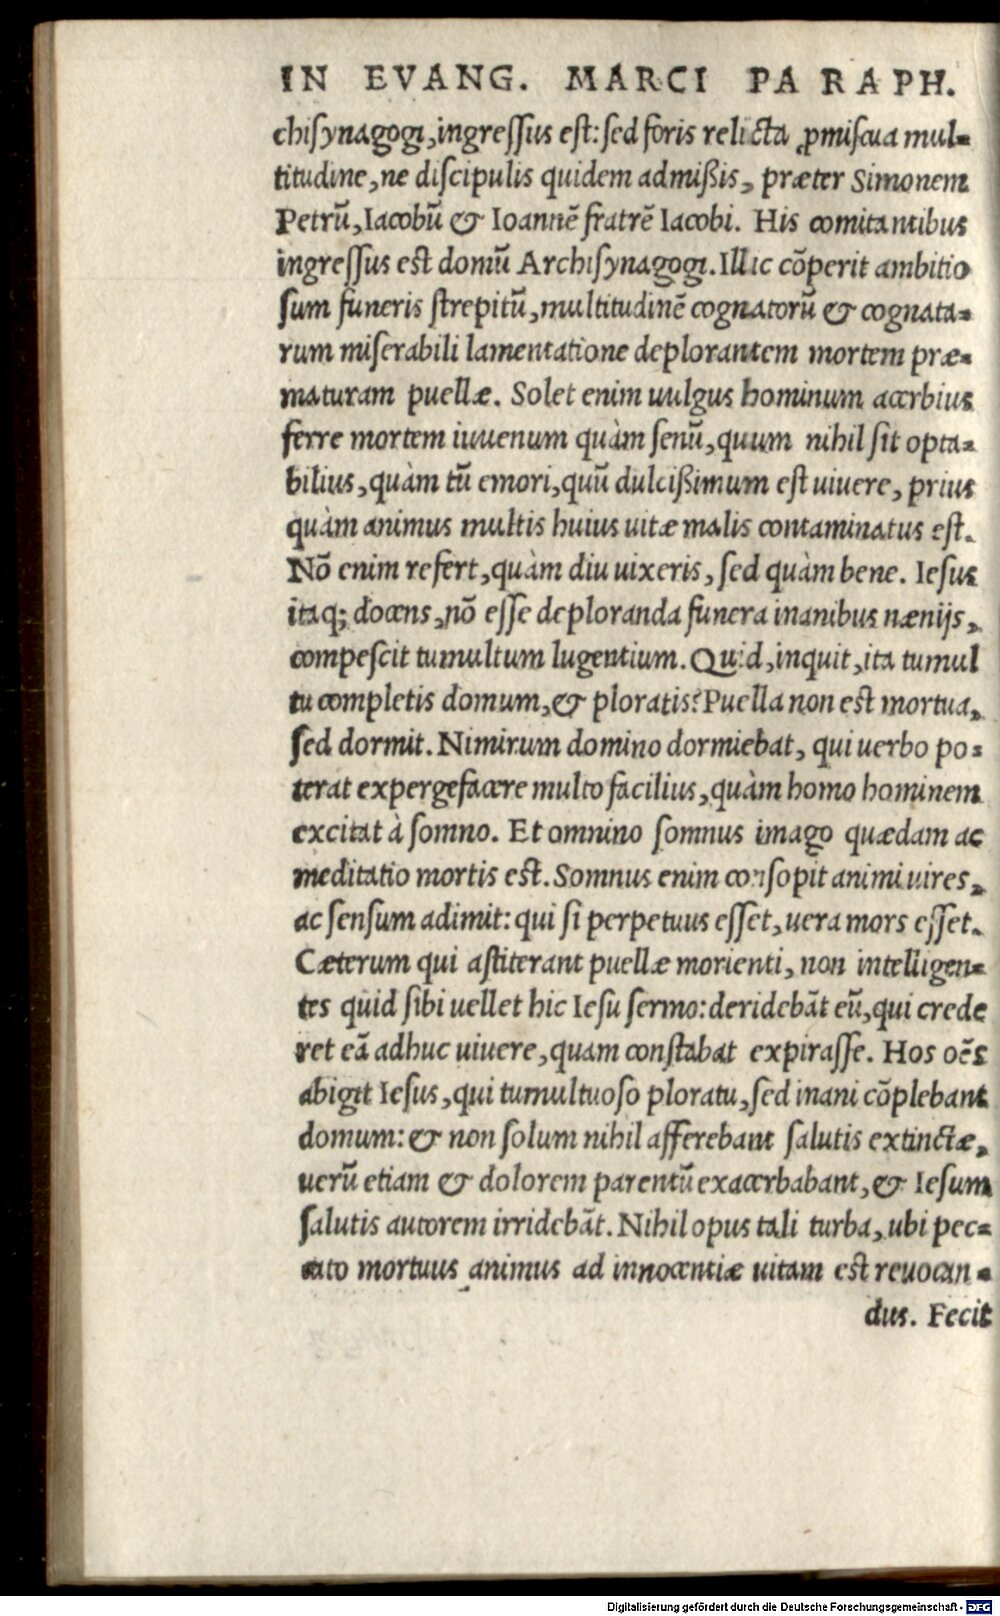 IN EVANG. MARCI PARAPH.
chiſynagogi, ingreſſus eſt: ſed foris relicta ꝓmiſcua mul-
titudine, ne diſcipulis quidem admiſsis, præter Simonem
Petrũ, Iacobũ & Ioannẽ fratrẽ Iacobi. His comitantibus
ingreſſus eſt domũ Archiſynagogi. Illic cõperit ambitio
ſum funeris ſtrepitũ, multitudinẽ cognatorũ & cognata-
rum miſerabili lamentatione deplorantem mortem præ-
maturam puellæ. Solet enim uulgus hominum acerbius
ferre mortem iuuenum quàm ſenũ, quum nihil ſit opta-
bilius, quàm tũ emori, quũ dulciſsimum eſt uiuere, prius
quàm animus multis huius uitæ malis contaminatus eſt.
Nõ enim refert, quàm diu uixeris, ſed quàm bene. Ieſus
itaq; docens, nõ eſſe deploranda funera inanibus nænijs,
compeſcit tumultum lugentium. Quid, inquit, ita tumul
tu completis domum, & ploratis? Puella non eſt mortua,
ſed dormit. Nimirum domino dormiebat, qui uerbo po-
terat expergefacere multo facilius, quàm homo hominem
excitat à ſomno. Et omnino ſomnus imago quædam ac
meditatio mortis eſt. Somnus enim conſopit animi uires,
ac ſenſum adimit: qui ſi perpetuus eſſet, uera mors eſſet.
Cæterum qui aſtiterant puellæ morienti, non intelligen-
tes quid ſibi uellet hic Ieſu ſermo: deridebãt eũ, qui crede
ret eã adhuc uiuere, quam conſtabat expiraſſe. Hos oẽs
abigit Ieſus, qui tumultuoſo ploratu, ſed inani cõplebant
domum: & non ſolum nihil afferebant ſalutis extinctæ,
uerũ etiam & dolorem parentũ exacerbabant, & Ieſum
ſalutis autorem irridebãt. Nihil opus tali turba, ubi pec-
cato mortuus animus ad innocentiæ uitam eſt reuocan-
dus. Fecit
Digitalisierung gefördert durch die Deutsche Forschungsgemeinschaft - DFG